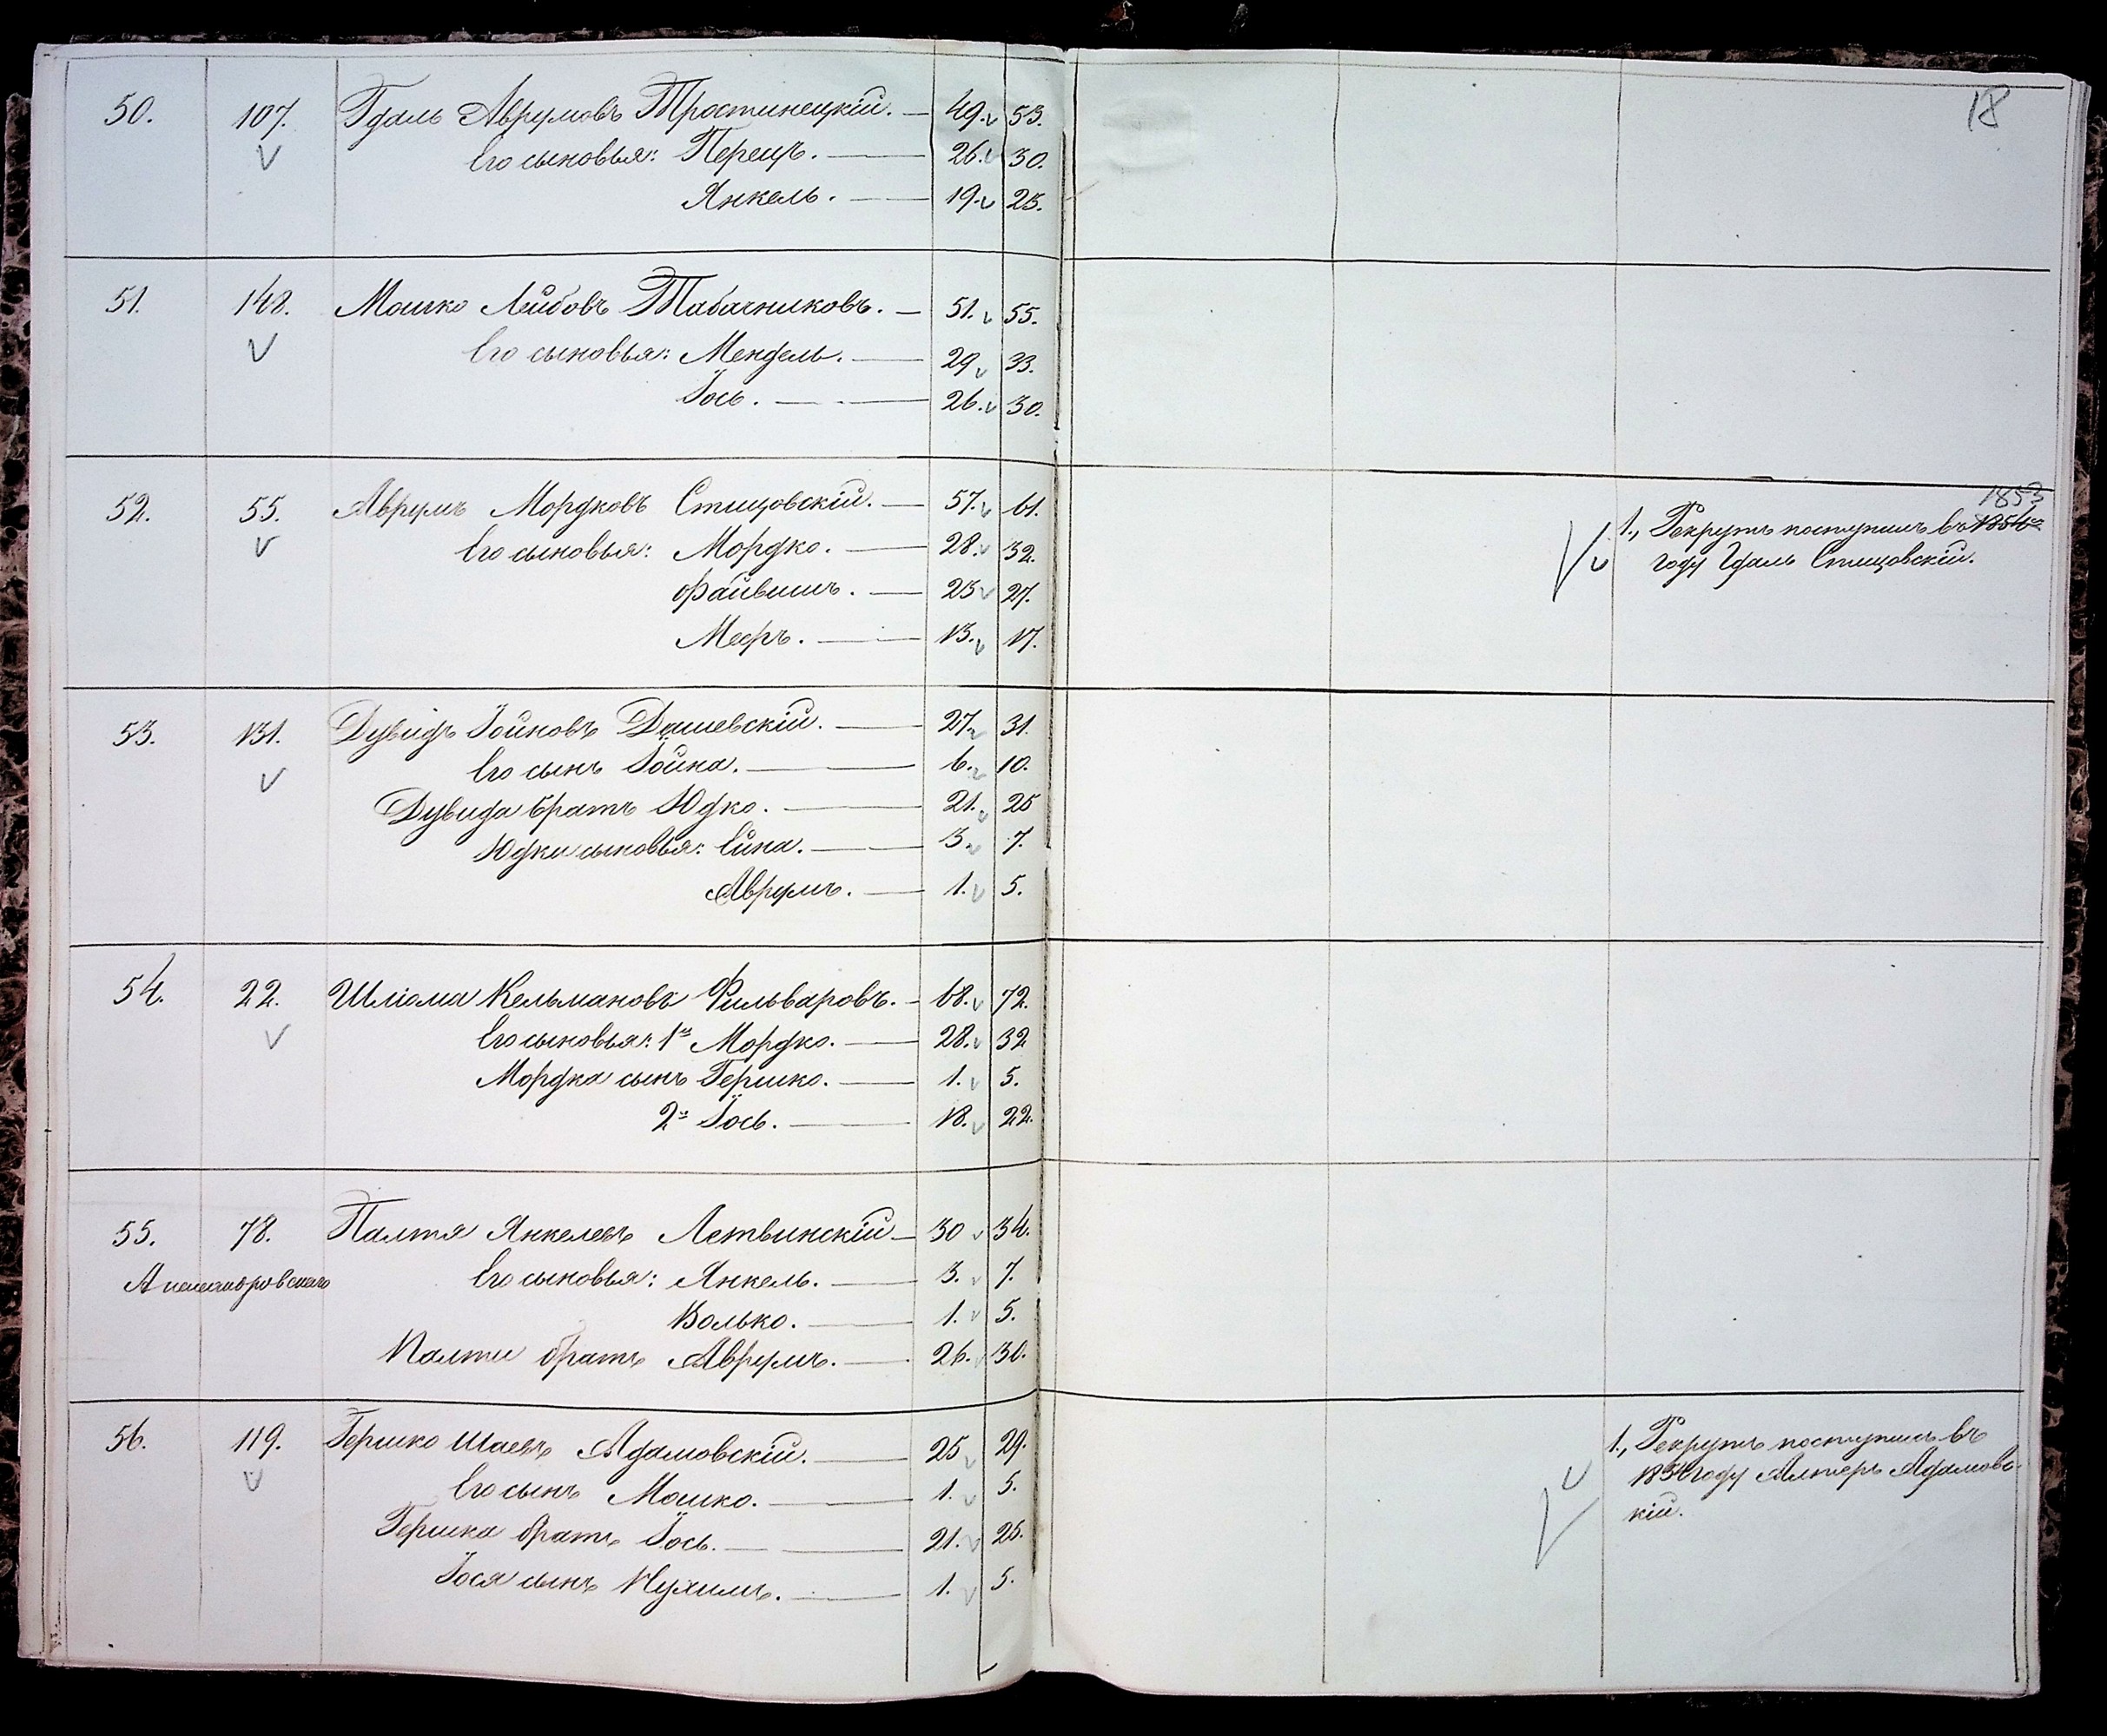 18
50. 107. Гдаль Аврумовъ Тростинецкій. — 49. 53.
Его сыновья: Перецъ. — 26. 30.
Янкель. — 19. 23.
51. 148. Мошко Лейбовъ Табачниковъ. — 51. 55.
Его сыновья: Мендель. — 29. 33.
Іось. — 26. 30.
1853
52. 55. Аврумъ Мордковъ Стицовскій. — 57. 61. 1., Рекрутъ поступилъ въ 1854
Его сыновья: Мордко. — 28. 32. году Гдаль Стицовскій.
Файвишъ. — 23 27.
Мееръ. — 13. 17.
53. 131. Дувидъ Іойновъ Дашевскій. — 27. 31.
Его сынъ Іойна. — 6. 10.
Дувида братъ Юдко. — 21. 25
Юдки сыновья: Сина. — 3. 7.
Аврумъ. — 1. 5.
54. 22. Шліома Кельмановъ Фильваровъ. — 68. 72.
Его сыновья: 1й Мордко. — 28. 32
Мордка сынъ Гершко. — 1. 5.
2й Іось. — 18. 22.
55. 78. Палтя Янкелевъ Летвинскій — 30 34.
Его сыновья: Янкель. — 3. 7.
Волько. — 1. 5.
Палти братъ Аврумъ. — 26. 30.
56. 119. Гершко Шаевъ Адамовскій. — 25 29. 1., Рекрутъ поступилъ въ
Его сынъ Мошко. — 1. 5. 1854 году Алтеръ Адамовс-
кій.
Гершка братъ Іось. — 21. 25.
Іося сынъ Нухимъ. — 1. 5.